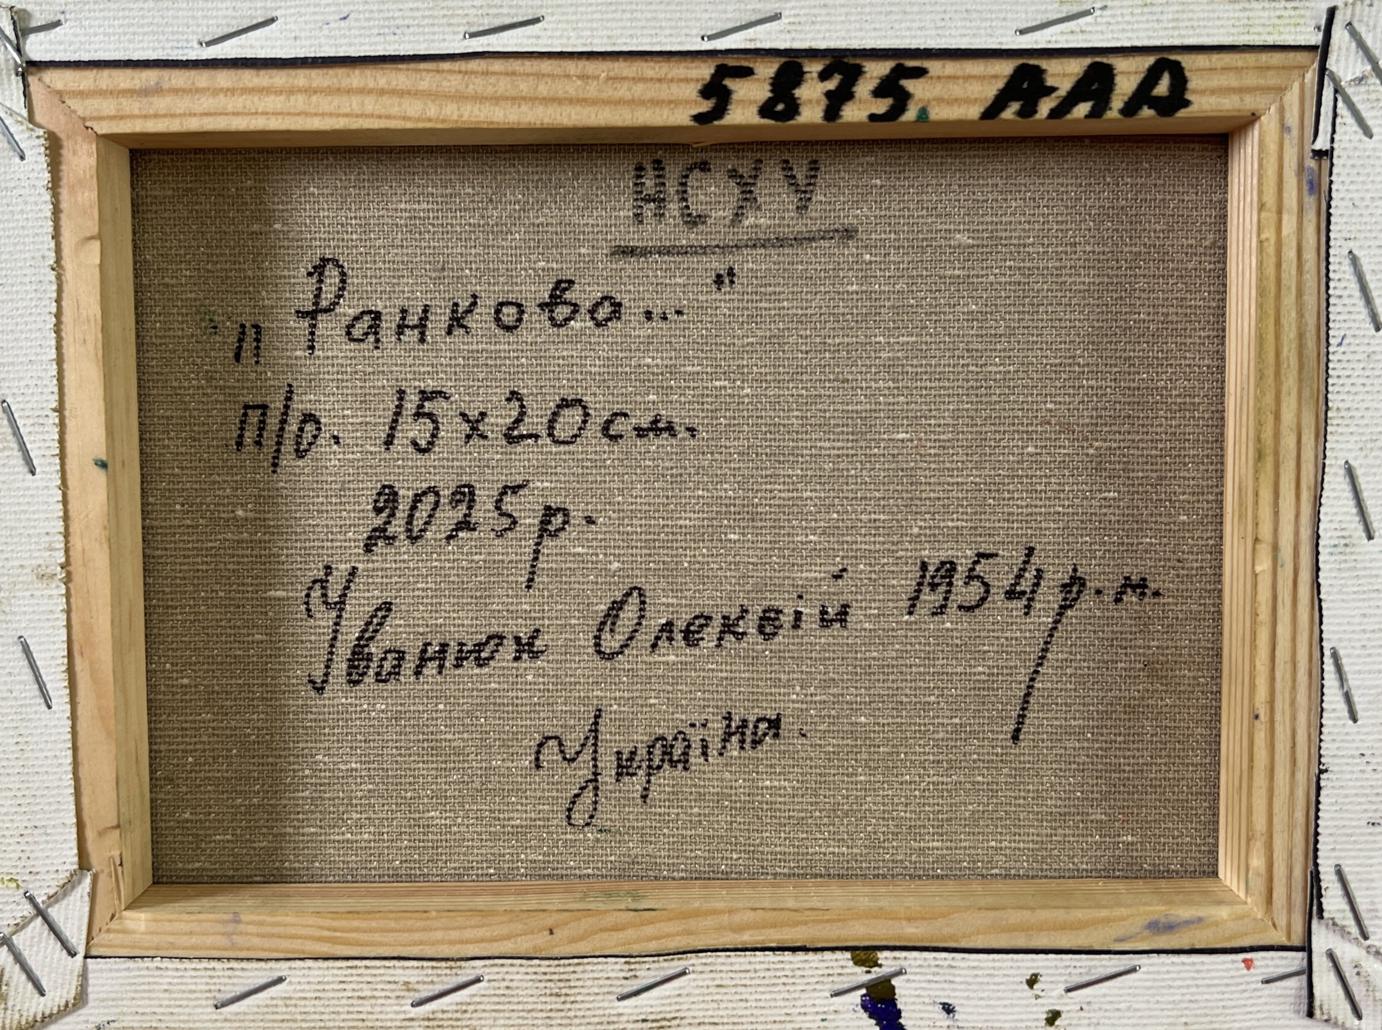 5875 ААА
НСХУ
„Ранкова..."
п/о. 15х20см.
2025р.
Іванюк Олексій 1954р.н.
Україна.